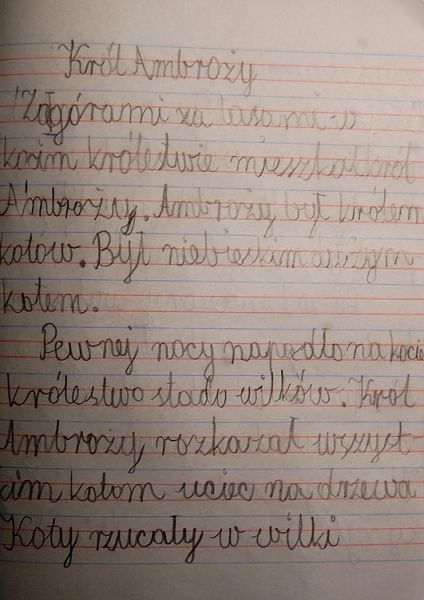 Król Ambroży
Za górami za lasami w
kocim królestwie mieszkał król
Ambroży. Ambroży był królem
kotów. Był niebieskim dużym
kotem.
Pewnej nocy napadło na kocie
królestwo stado wilków. Król
Ambroży rozkazał wszyst-
kim kotom uciec na drzewa
Koty rzucały w wilki